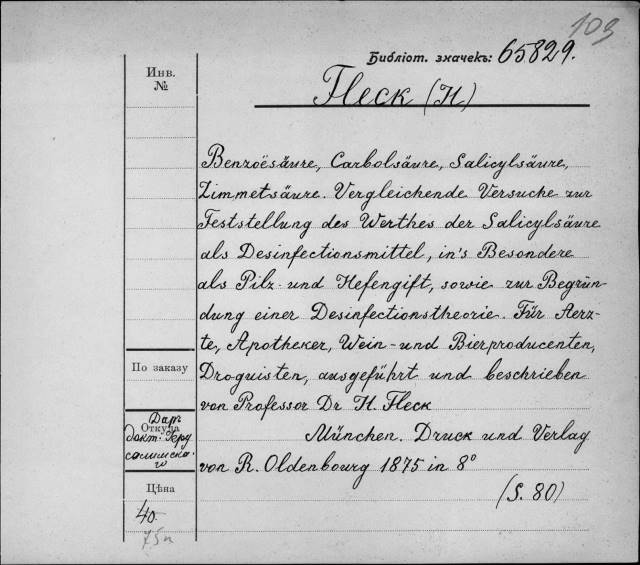 103
Библіот. значекъ: 65829.
Инв.
№
Fleck (H)
Benzoësäure, Carbolsäure, Salicylsäure,
Zimmetsäure. Vergleichende Versuche zur
Feststellung des Werthes der Salicylsäure
als Desinfectionsmittel, in's Besondere
als Pilz- und Hefengift, sowie zur Begrün-
dung einer Desinfectionstheorie. Für Aerz-
te, Apotheker, Wein- und Bierproducenten,
Droguisten, ausgeführt und beschrieben
von Professor Dr H. Fleck
München. Druck und Verlag
von R. Oldenbourg 1875 in 8º
(S. 80)
По заказу
Откуда
Дар.
докт. Іеру
салимска-
го
Цѣна
40.
75 к